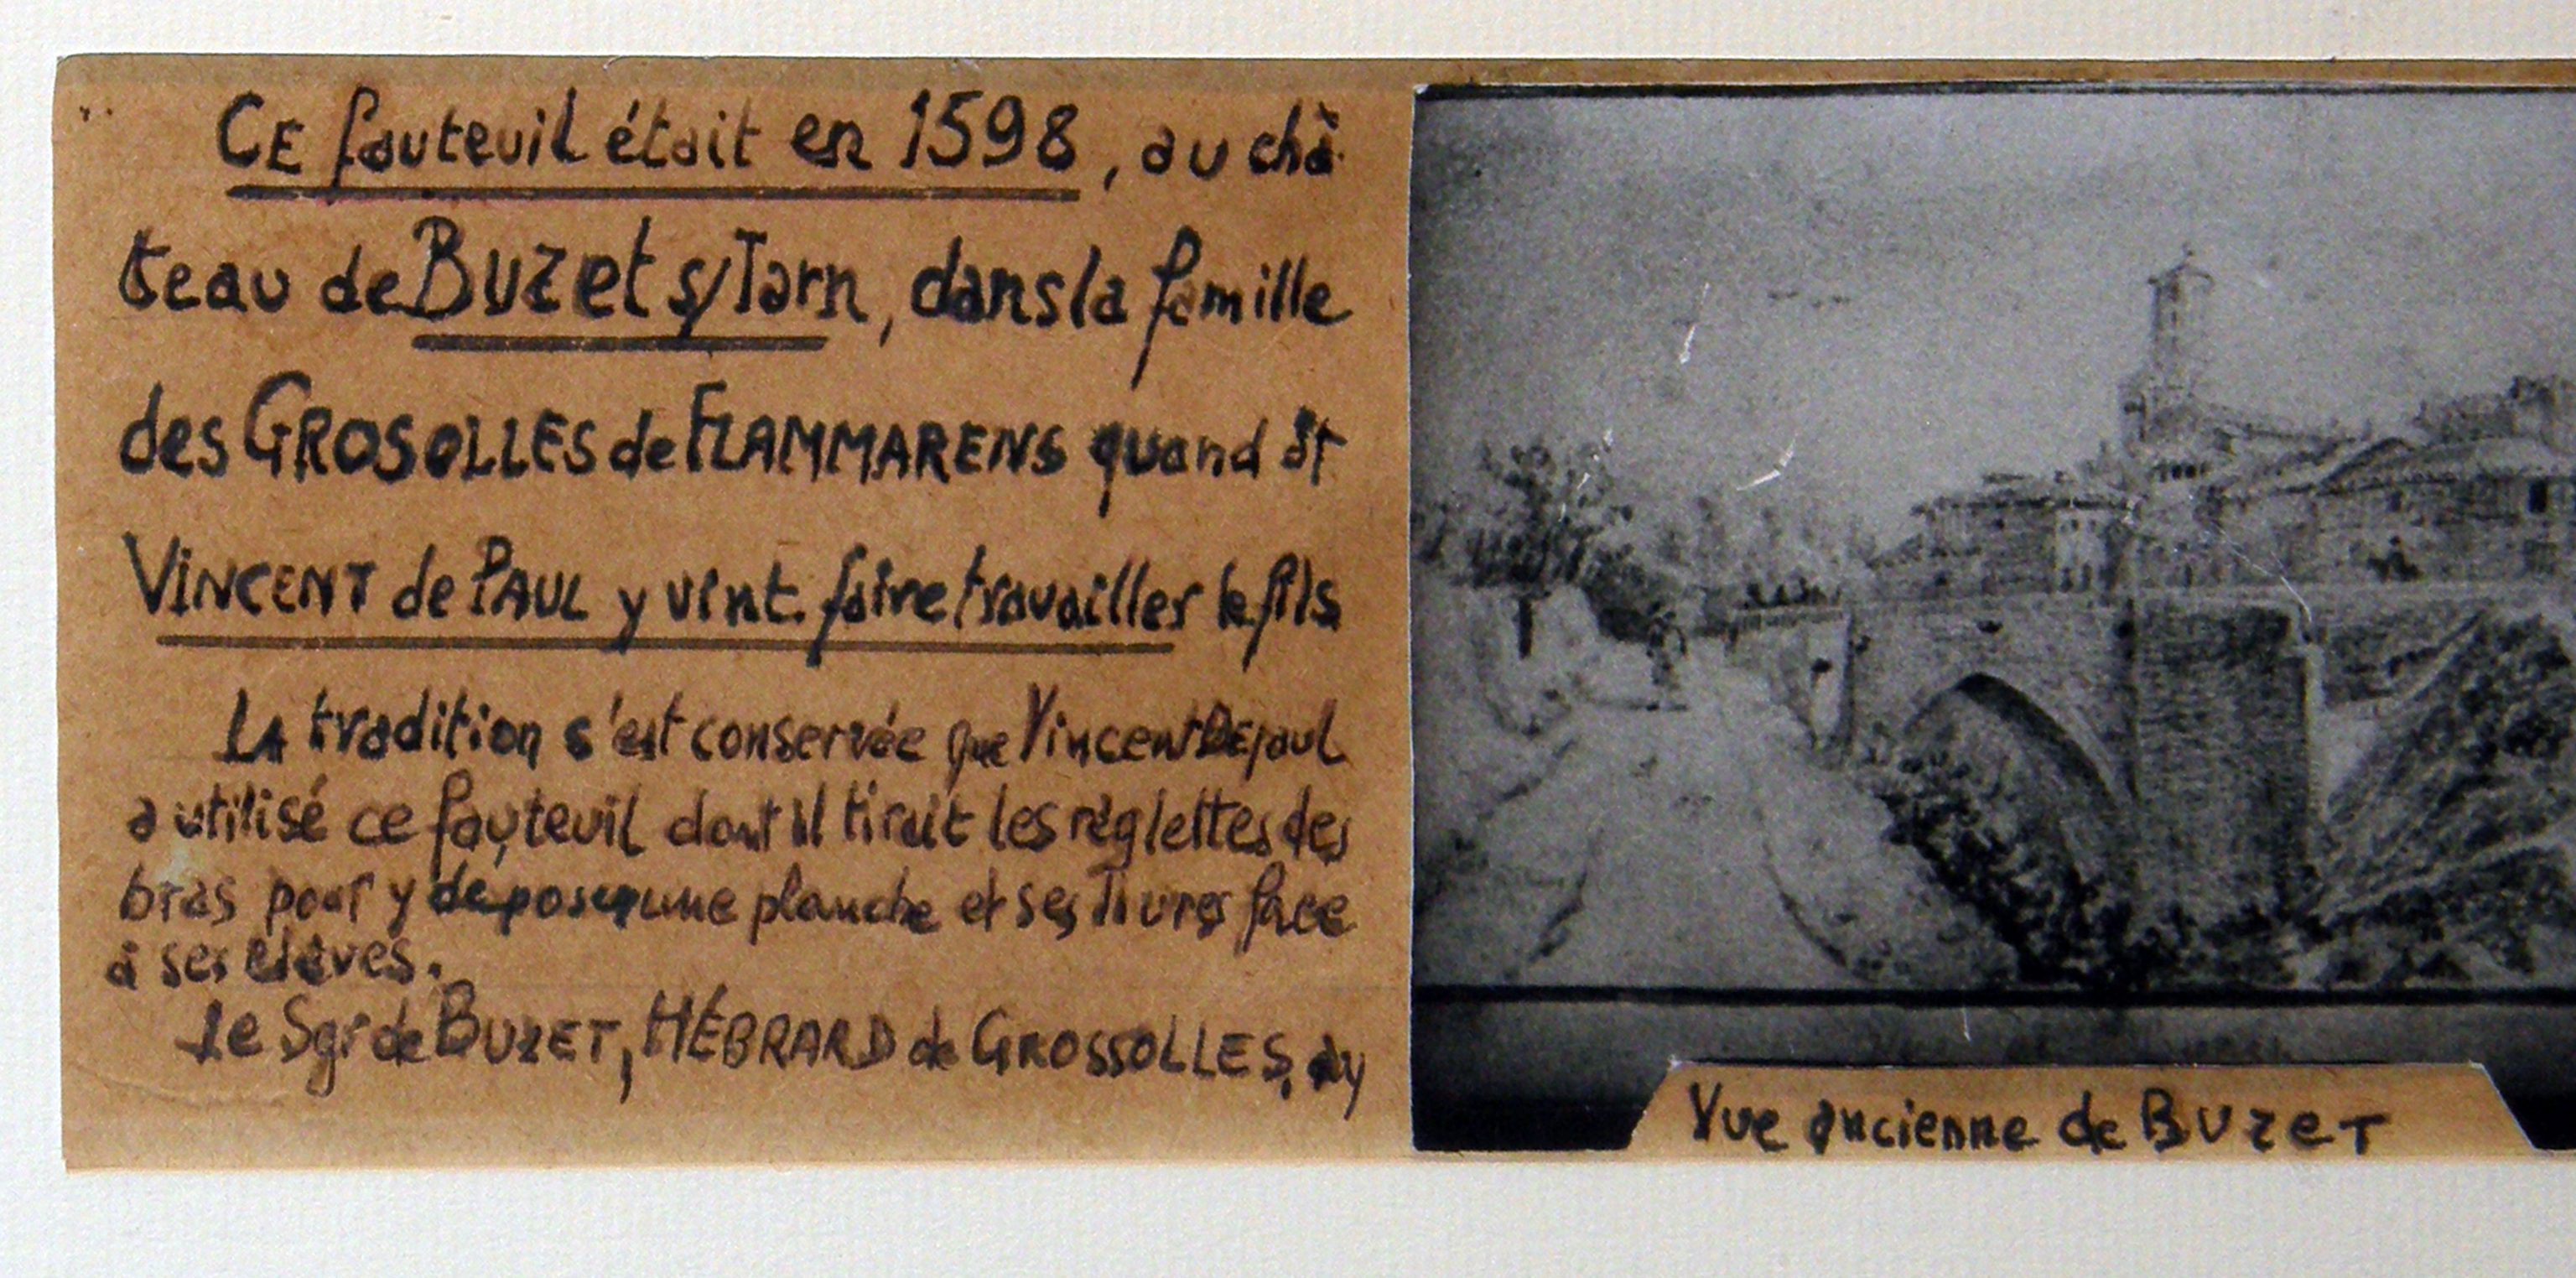 CE fauteuil était en 1598, au châ-
teau de Buzet s/Tarn, dans la famille
des GROSOLLES de FLAMMARENS quand St
VINCENT de PAUL y vint faire travailler le fils
LA tradition s'est conservée que Vincent DEpaul
a utilisé ce fauteuil dont il tirait les règlettes des
bras pour y déposer une planche et ses livres face
à ses élèves.
Le Sgr de BUZET, HÉBRARD de GROSSOLLES,
Vue ancienne de BuzeT